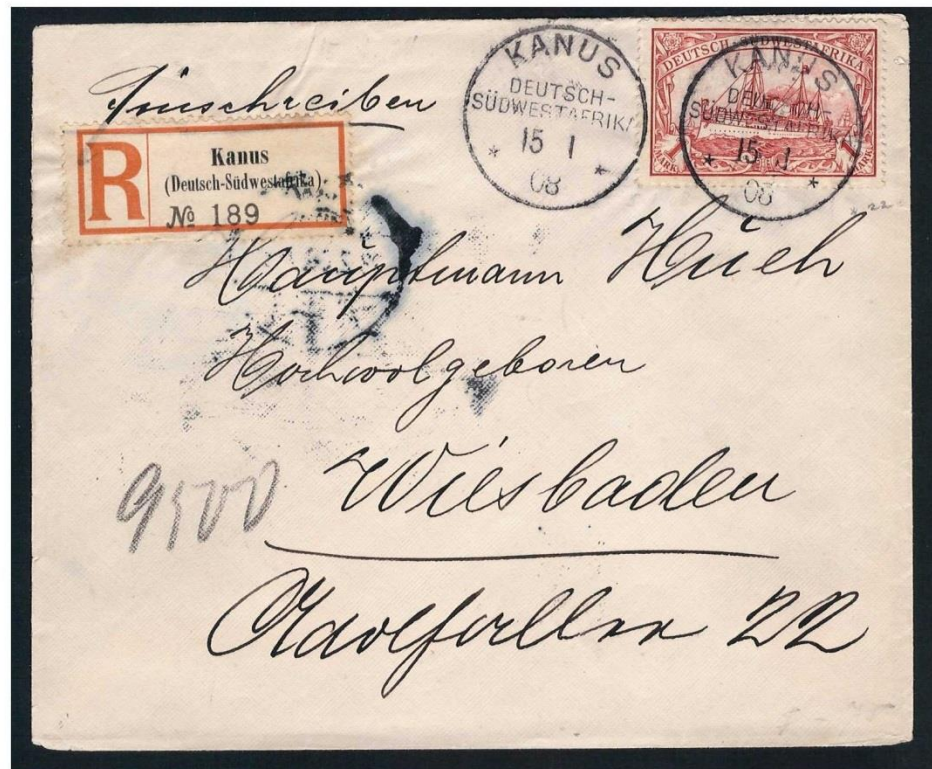 Einschreiben
R
Kanus
(Deutsch-Südwestafrika)
№ 189
KANUS
DEUTSCH-
SÜDWESTAFRIKA
15 1
08
DEUTSCH-SÜDWESTAFRIKA
1 MARK
1 MARK
KANUS
DEUTSCH-
SÜDWESTAFRIKA
15 1
08
22
Hauptmann Huch
Hochwolgeboren
Wiesbaden
9500
Adolfallee 22